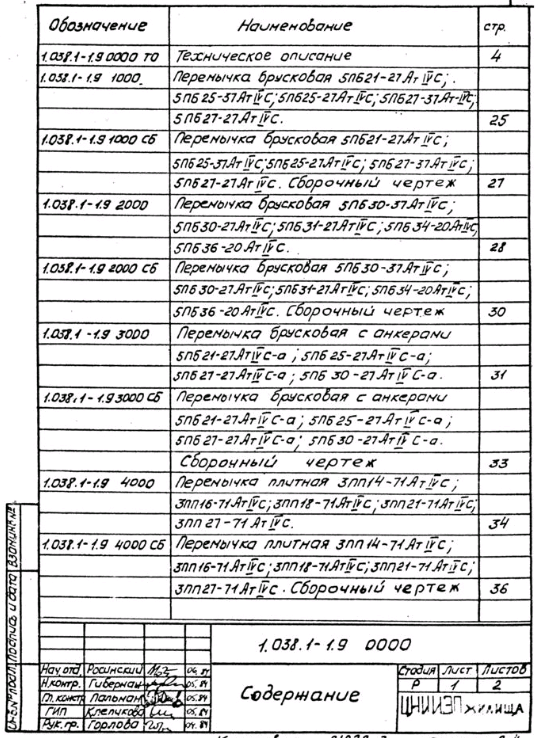 Обозначение Наименование стр.
1.038.1-1.9 0000 ТО Техническое описание 4
1.038.1-1.9 1000 Перемычка брусковая 5ПБ21-27АтIVС;
5ПБ25-37АтIVС; 5ПБ25-27АтIVС; 5ПБ27-37АтIVС;
5ПБ27-27АтIVС. 25
1.038.1-1.9 1000 СБ Перемычка брусковая 5ПБ21-27АтIVС;
5ПБ25-37АтIVС; 5ПБ25-27АтIVС; 5ПБ27-37АтIVС;
5ПБ27-27АтIVС. Сборочный чертеж 27
1.038.1-1.9 2000 Перемычка брусковая 5ПБ30-37АтIVС;
5ПБ30-27АтIVС; 5ПБ31-27АтIVС; 5ПБ34-20АтIVС;
5ПБ36-20АтIVС. 28
1.038.1-1.9 2000 СБ Перемычка брусковая 5ПБ30-37АтIVС;
5ПБ30-27АтIVС; 5ПБ31-27АтIVС; 5ПБ34-20АтIVС;
5ПБ36-20АтIVС. Сборочный чертеж 30
1.038.1-1.9 3000 Перемычка брусковая с анкерами
5ПБ21-27АтIVС-а; 5ПБ25-27АтIVС-а;
5ПБ27-27АтIVС-а; 5ПБ30-27АтIVС-а. 31
1.038.1-1.9 3000 СБ Перемычка брусковая с анкерами
5ПБ21-27АтIVС-а; 5ПБ25-27АтIVС-а;
5ПБ27-27АтIVС-а; 5ПБ30-27АтIVС-а.
Сборочный чертеж 33
1.038.1-1.9 4000 Перемычка плитная 3ПП14-71АтIVС;
3ПП16-71АтIVС; 3ПП18-71АтIVС; 3ПП21-71АтIVС;
3ПП27-71АтIVС. 34
1.038.1-1.9 4000 СБ Перемычка плитная 3ПП14-71АтIVС;
3ПП16-71АтIVС; 3ПП18-71АтIVС; 3ПП21-71АтIVС;
3ПП27-71АтIVС. Сборочный чертеж 36
Инв.№ подл. Подпись и дата Взам.инв.№
1.038.1-1.9 0000
Нач.отд. Росинский
Н.контр.
Гл. констр. Пальман
ГИП
Рук.гр. Горлова
Содержание
Стадия Лист Листов
Р 1 2
ЦНИИЭП жилища